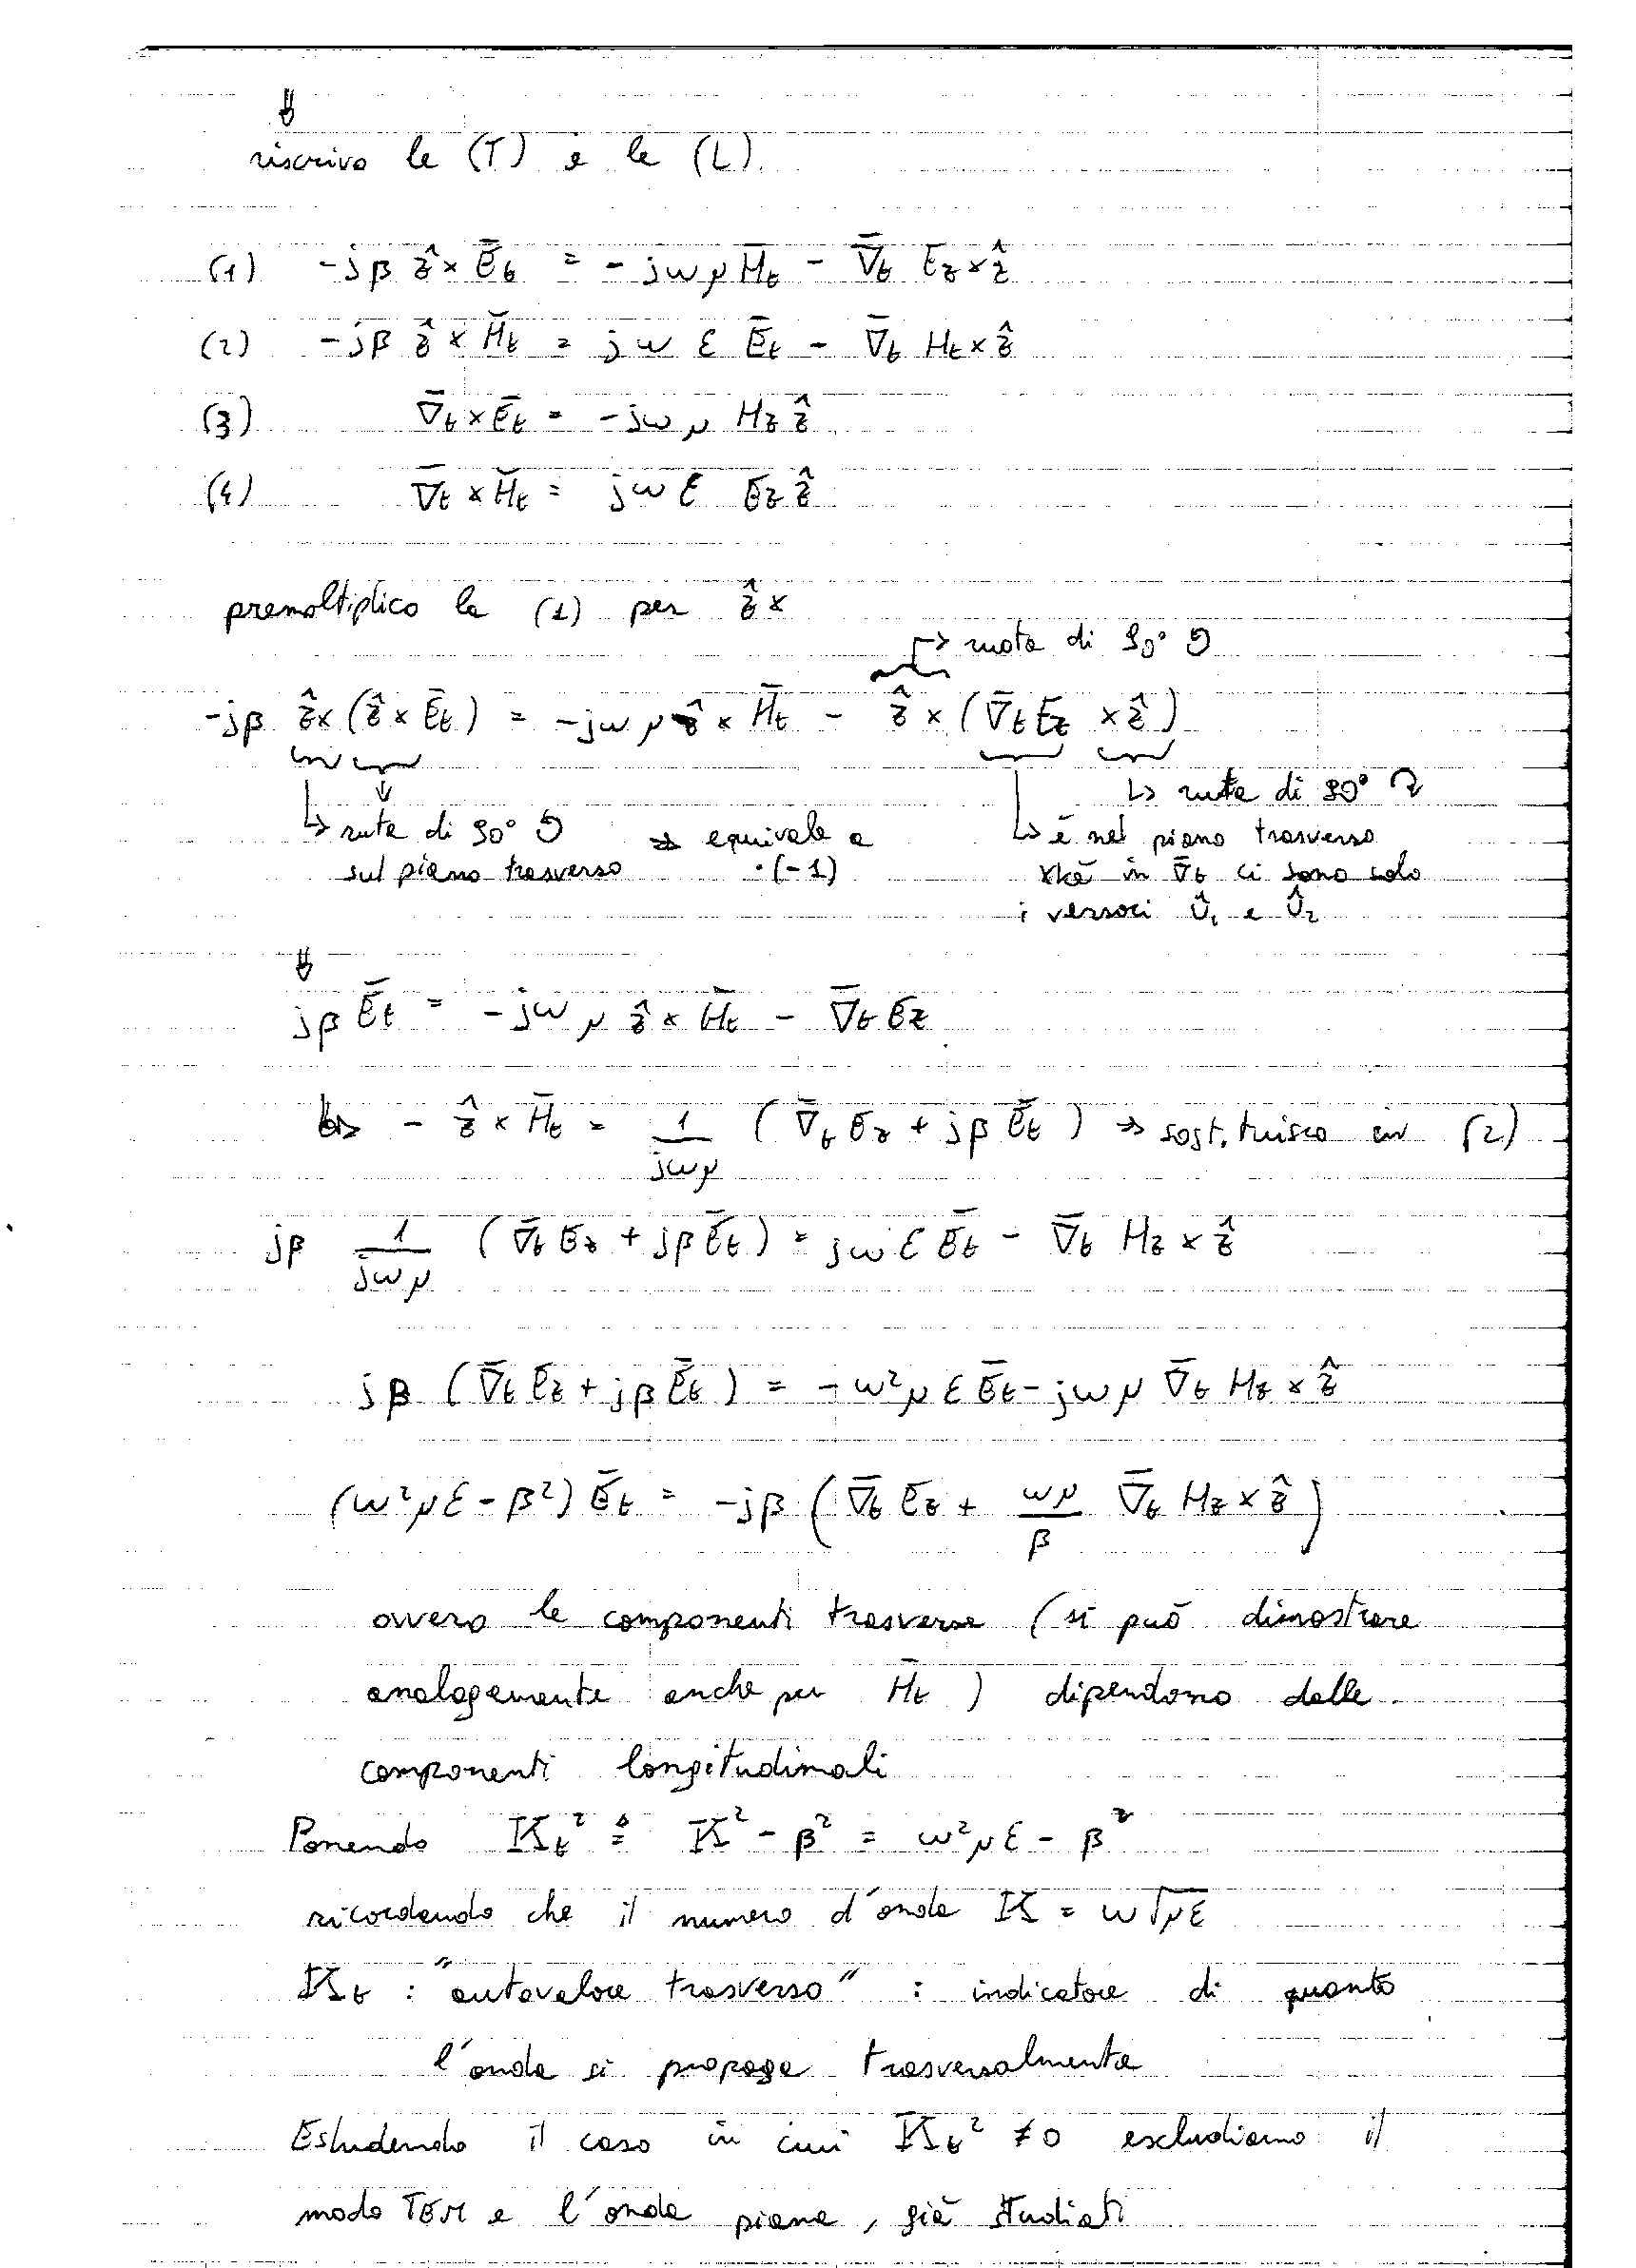 ⇓
riscrivo le (T) e le (L).
(1) -jβ ẑ × Ēt = -jωμ H̄t - ∇̄t Ez × ẑ
(2) -jβ ẑ × H̄t = jω ε Ēt - ∇̄t Ht × ẑ
(3) ∇̄t × Ēt = -jωμ Hz ẑ
(4) ∇̄t × H̄t = jω ε Ez ẑ
premoltiplico la (1) per ẑ ×
↱> ruota di 90° ↺
-jβ ẑ × (ẑ × Ēt) = -jωμ ẑ × H̄t - ẑ × (∇̄t Ez × ẑ)
↳ ruota di 90° ↷
↳ ruta di 90° ↺ ⇒ equivale a ↳ è nel piano trasverso
sul piano trasverso ·(-1) xké in ∇̄t ci sono solo
i versori û1 e û2
⇓
jβ Ēt = -jωμ ẑ × H̄t - ∇̄t Ez
↳ - ẑ × H̄t = 1/jωμ (∇̄t Ez + jβ Ēt) ⇒ sostituisco in (2)
jβ 1/jωμ (∇̄t Ez + jβ Ēt) = jω ε Ēt - ∇̄t Hz × ẑ
jβ (∇̄t Ez + jβ Ēt) = -ω²μ ε Ēt - jωμ ∇̄t Hz × ẑ
(ω²με - β²) Ēt = -jβ (∇̄t Ez + ωμ/β ∇̄t Hz × ẑ)
ovvero le componenti trasverse (si può dimostrare
analogamente anche per H̄t ) dipendono dalle
componenti longitudinali
Ponendo Kt² ≜ K² - β² = ω²με - β²
ricordando che il numero d'onda K = ω√με
Kt : "autovalore trasverso" : indicatore di quanto
l'onda si propaga trasversalmente
Esludendo il caso in cui Kt² ≠ 0 escludiamo il
modo TEM e l'onda piana, già studiati